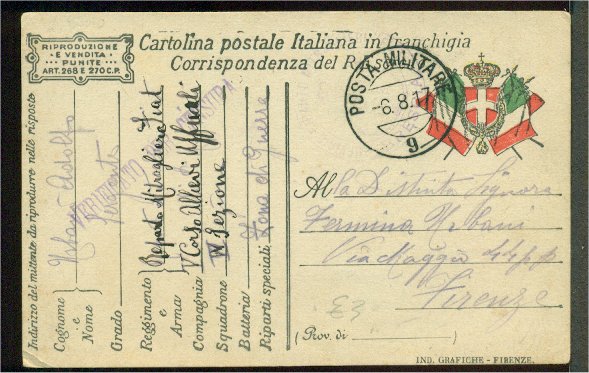 RIPRODUZIONE
E VENDITA
PUNITE
ART. 268 E 270 C.P.
Cartolina postale Italiana in franchigia
Corrispondenza del R.
POSTA MILITARE
-6.8.17
9
Indirizzo del mittente da riprodurre nelle risposte
Cognome e Nome Urbani Adolfo
Grado Sergente
Reggimento e Arma Reparto Mitraglieri Fiat
Compagnia Corso Allievi Ufficiali
Squadrone IV Sezione
Batteria
Riparti speciali Zona di Guerra
Alla Distinta Signora
Fermina Urbani
Via Maggio 44 p.p.
Firenze
£3
(Prov. di )
IND. GRAFICHE - FIRENZE.